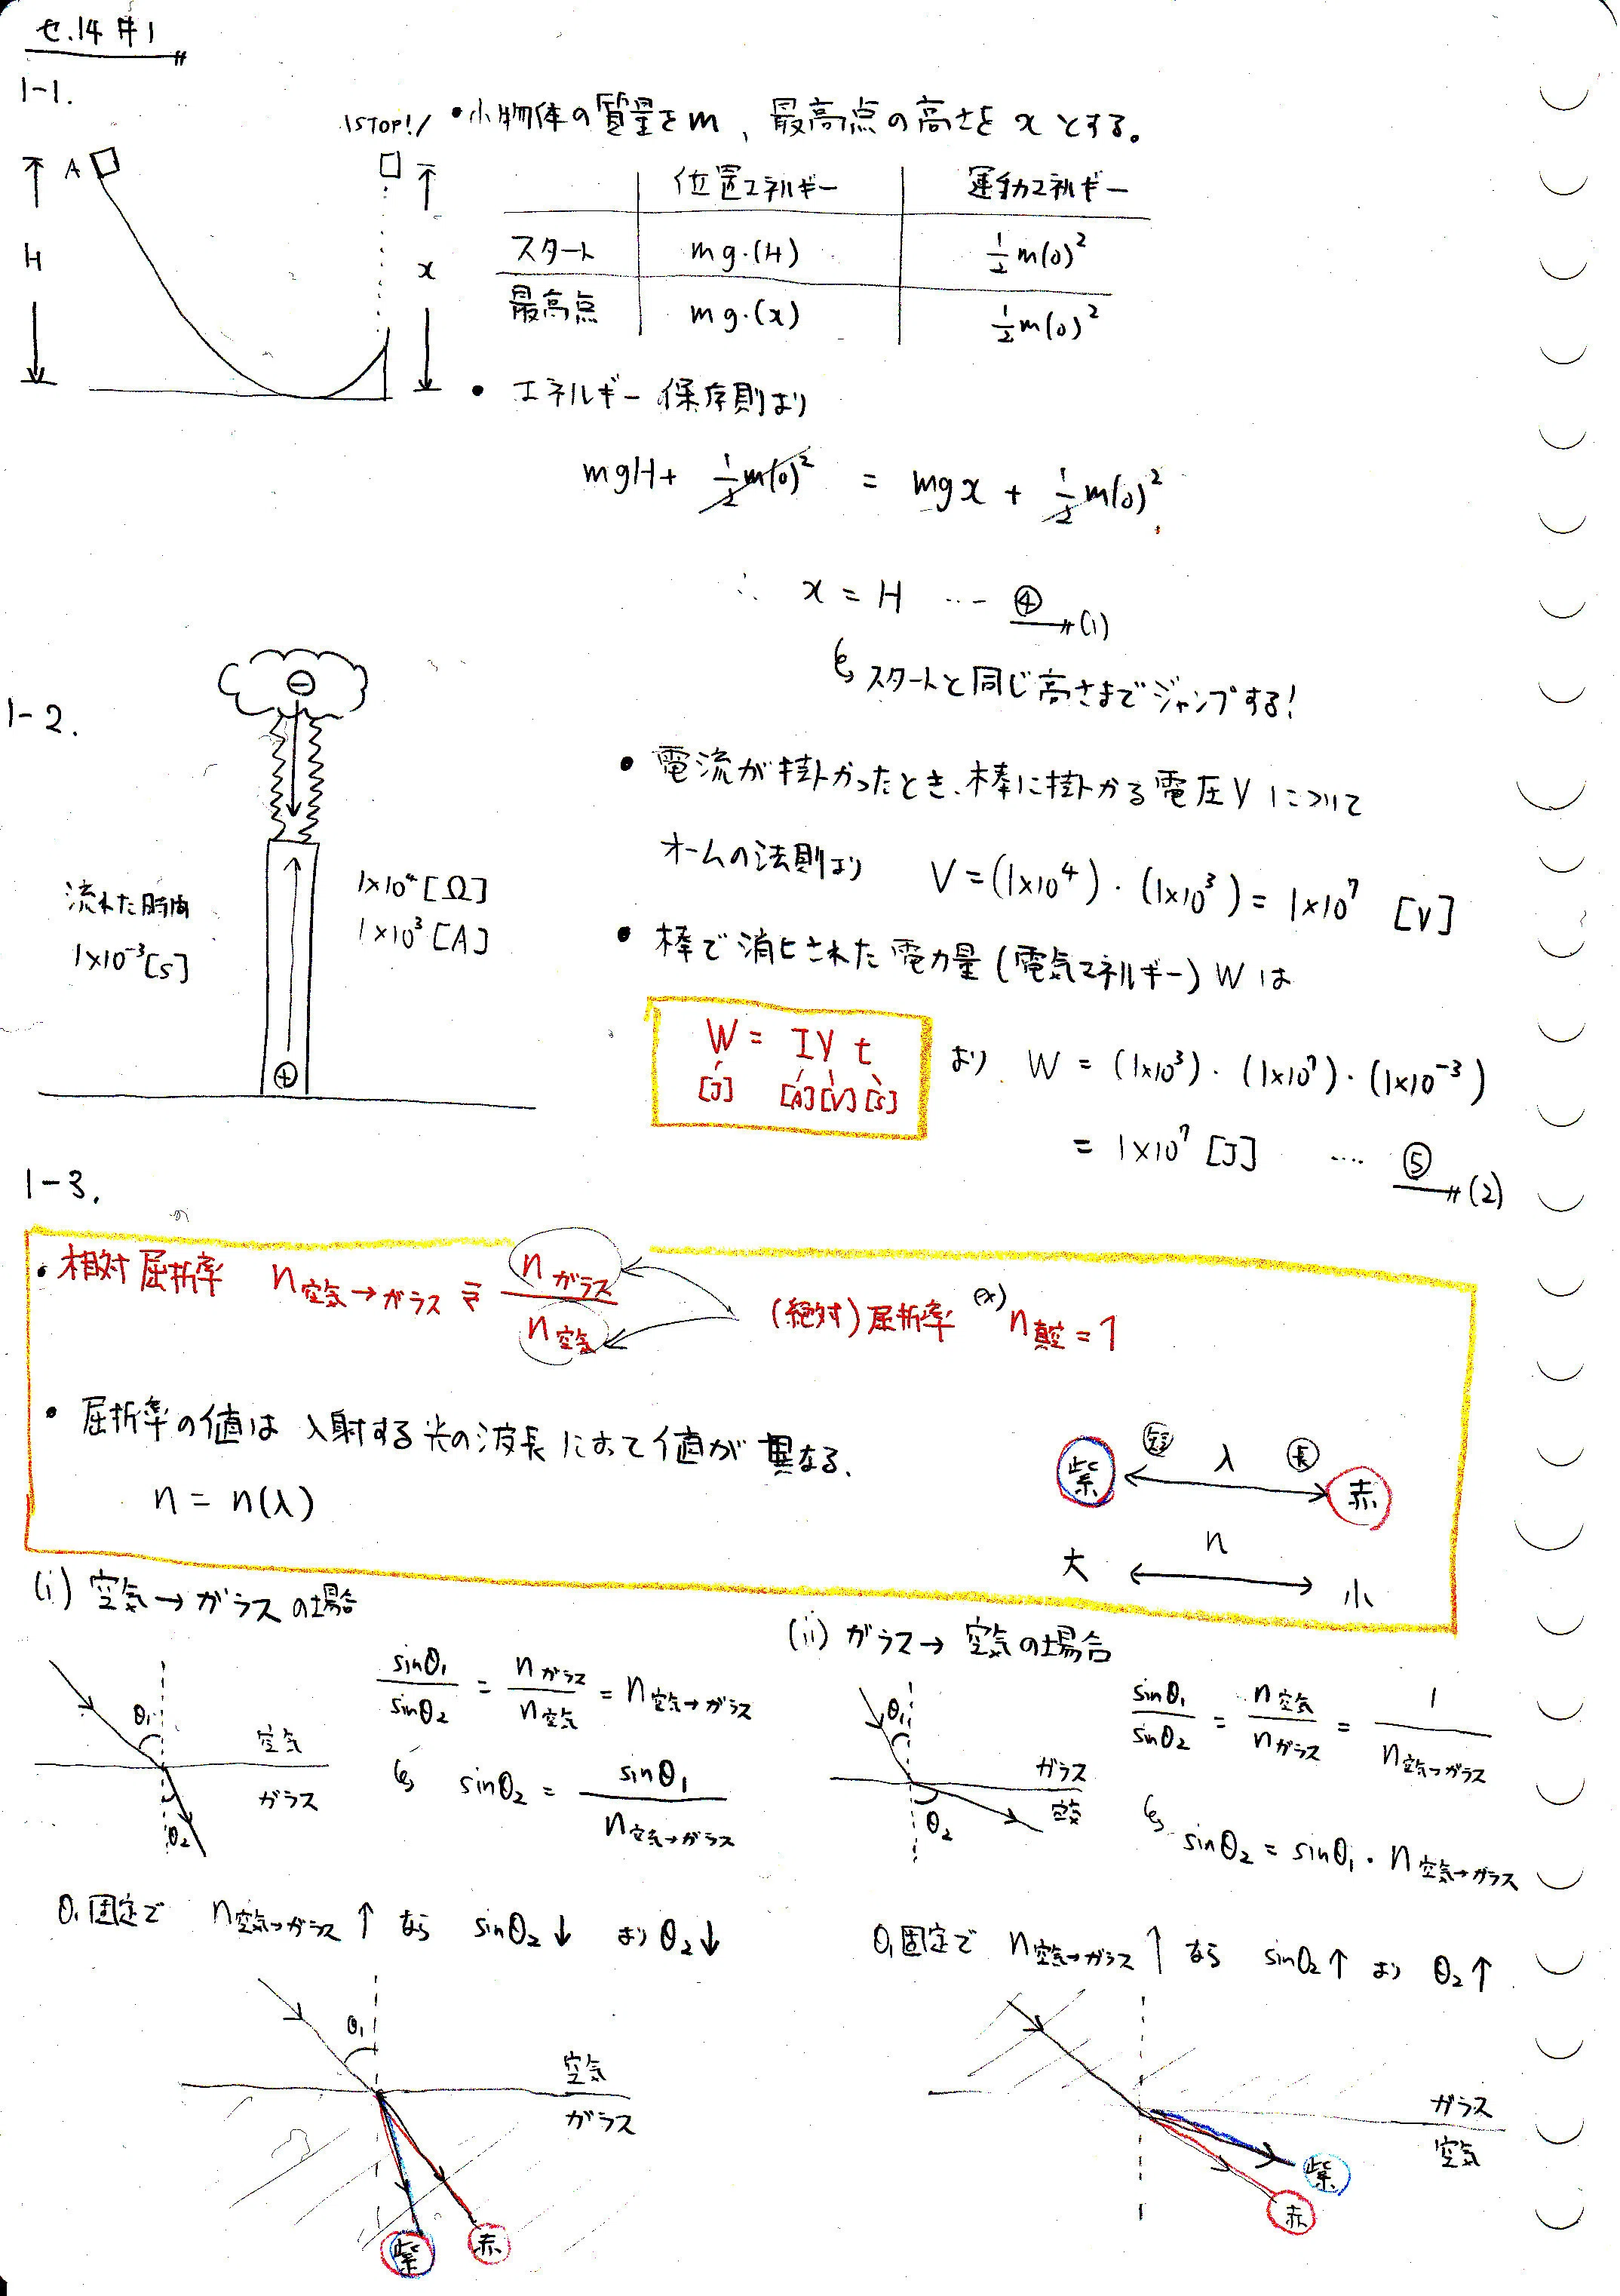 セ.14 #1
1-1.
\STOP!/
・小物体の質量をm、最高点の高さを x とする。
A
H
x
位置エネルギー 運動エネルギー
スタート mg・(H) 1/2 m(0)²
最高点 mg・(x) 1/2 m(0)²
・エネルギー保存則より
mgH + 1/2 m(0)² = mgx + 1/2 m(0)²
∴ x = H … ④ (1)
↳ スタートと同じ高さまでジャンプする!
1-2.
⊖
流れた時間
1×10⁻³[s]
1×10⁴[Ω]
1×10³[A]
⊕
・電流が掛かったとき、棒に掛かる電圧Vについて
オームの法則より V=(1×10⁴)・(1×10³)= 1×10⁷ [V]
・棒で消ヒされた電力量(電気エネルギー) W は
W = IV t
[J] [A][V][s]
より W = (1×10³)・(1×10⁷)・(1×10⁻³)
= 1×10⁷ [J] …. ⑤ (2)
1-3.
・相対屈折率 n空気→ガラス ≡ nガラス/n空気 (絶対)屈折率 ex) n真空=1
・屈折率の値は入射する光の波長によって値が異なる.
n = n(λ)
紫 短 λ 長 赤
大 n 小
(i) 空気→ガラスの場合
θ₁
空気
ガラス
θ₂
sinθ₁/sinθ₂ = nガラス/n空気 = n空気→ガラス
↳ sinθ₂ = sinθ₁/n空気→ガラス
θ₁固定で n空気→ガラス ↑ なら sinθ₂↓ より θ₂↓
θ₁
空気
ガラス
紫
赤
(ii) ガラス→空気の場合
θ₁
ガラス
空気
θ₂
sinθ₁/sinθ₂ = n空気/nガラス = 1/n空気→ガラス
↳ sinθ₂ = sinθ₁・n空気→ガラス
θ₁固定で n空気→ガラス ↑ なら sinθ₂↑ より θ₂↑
ガラス
空気
紫
赤